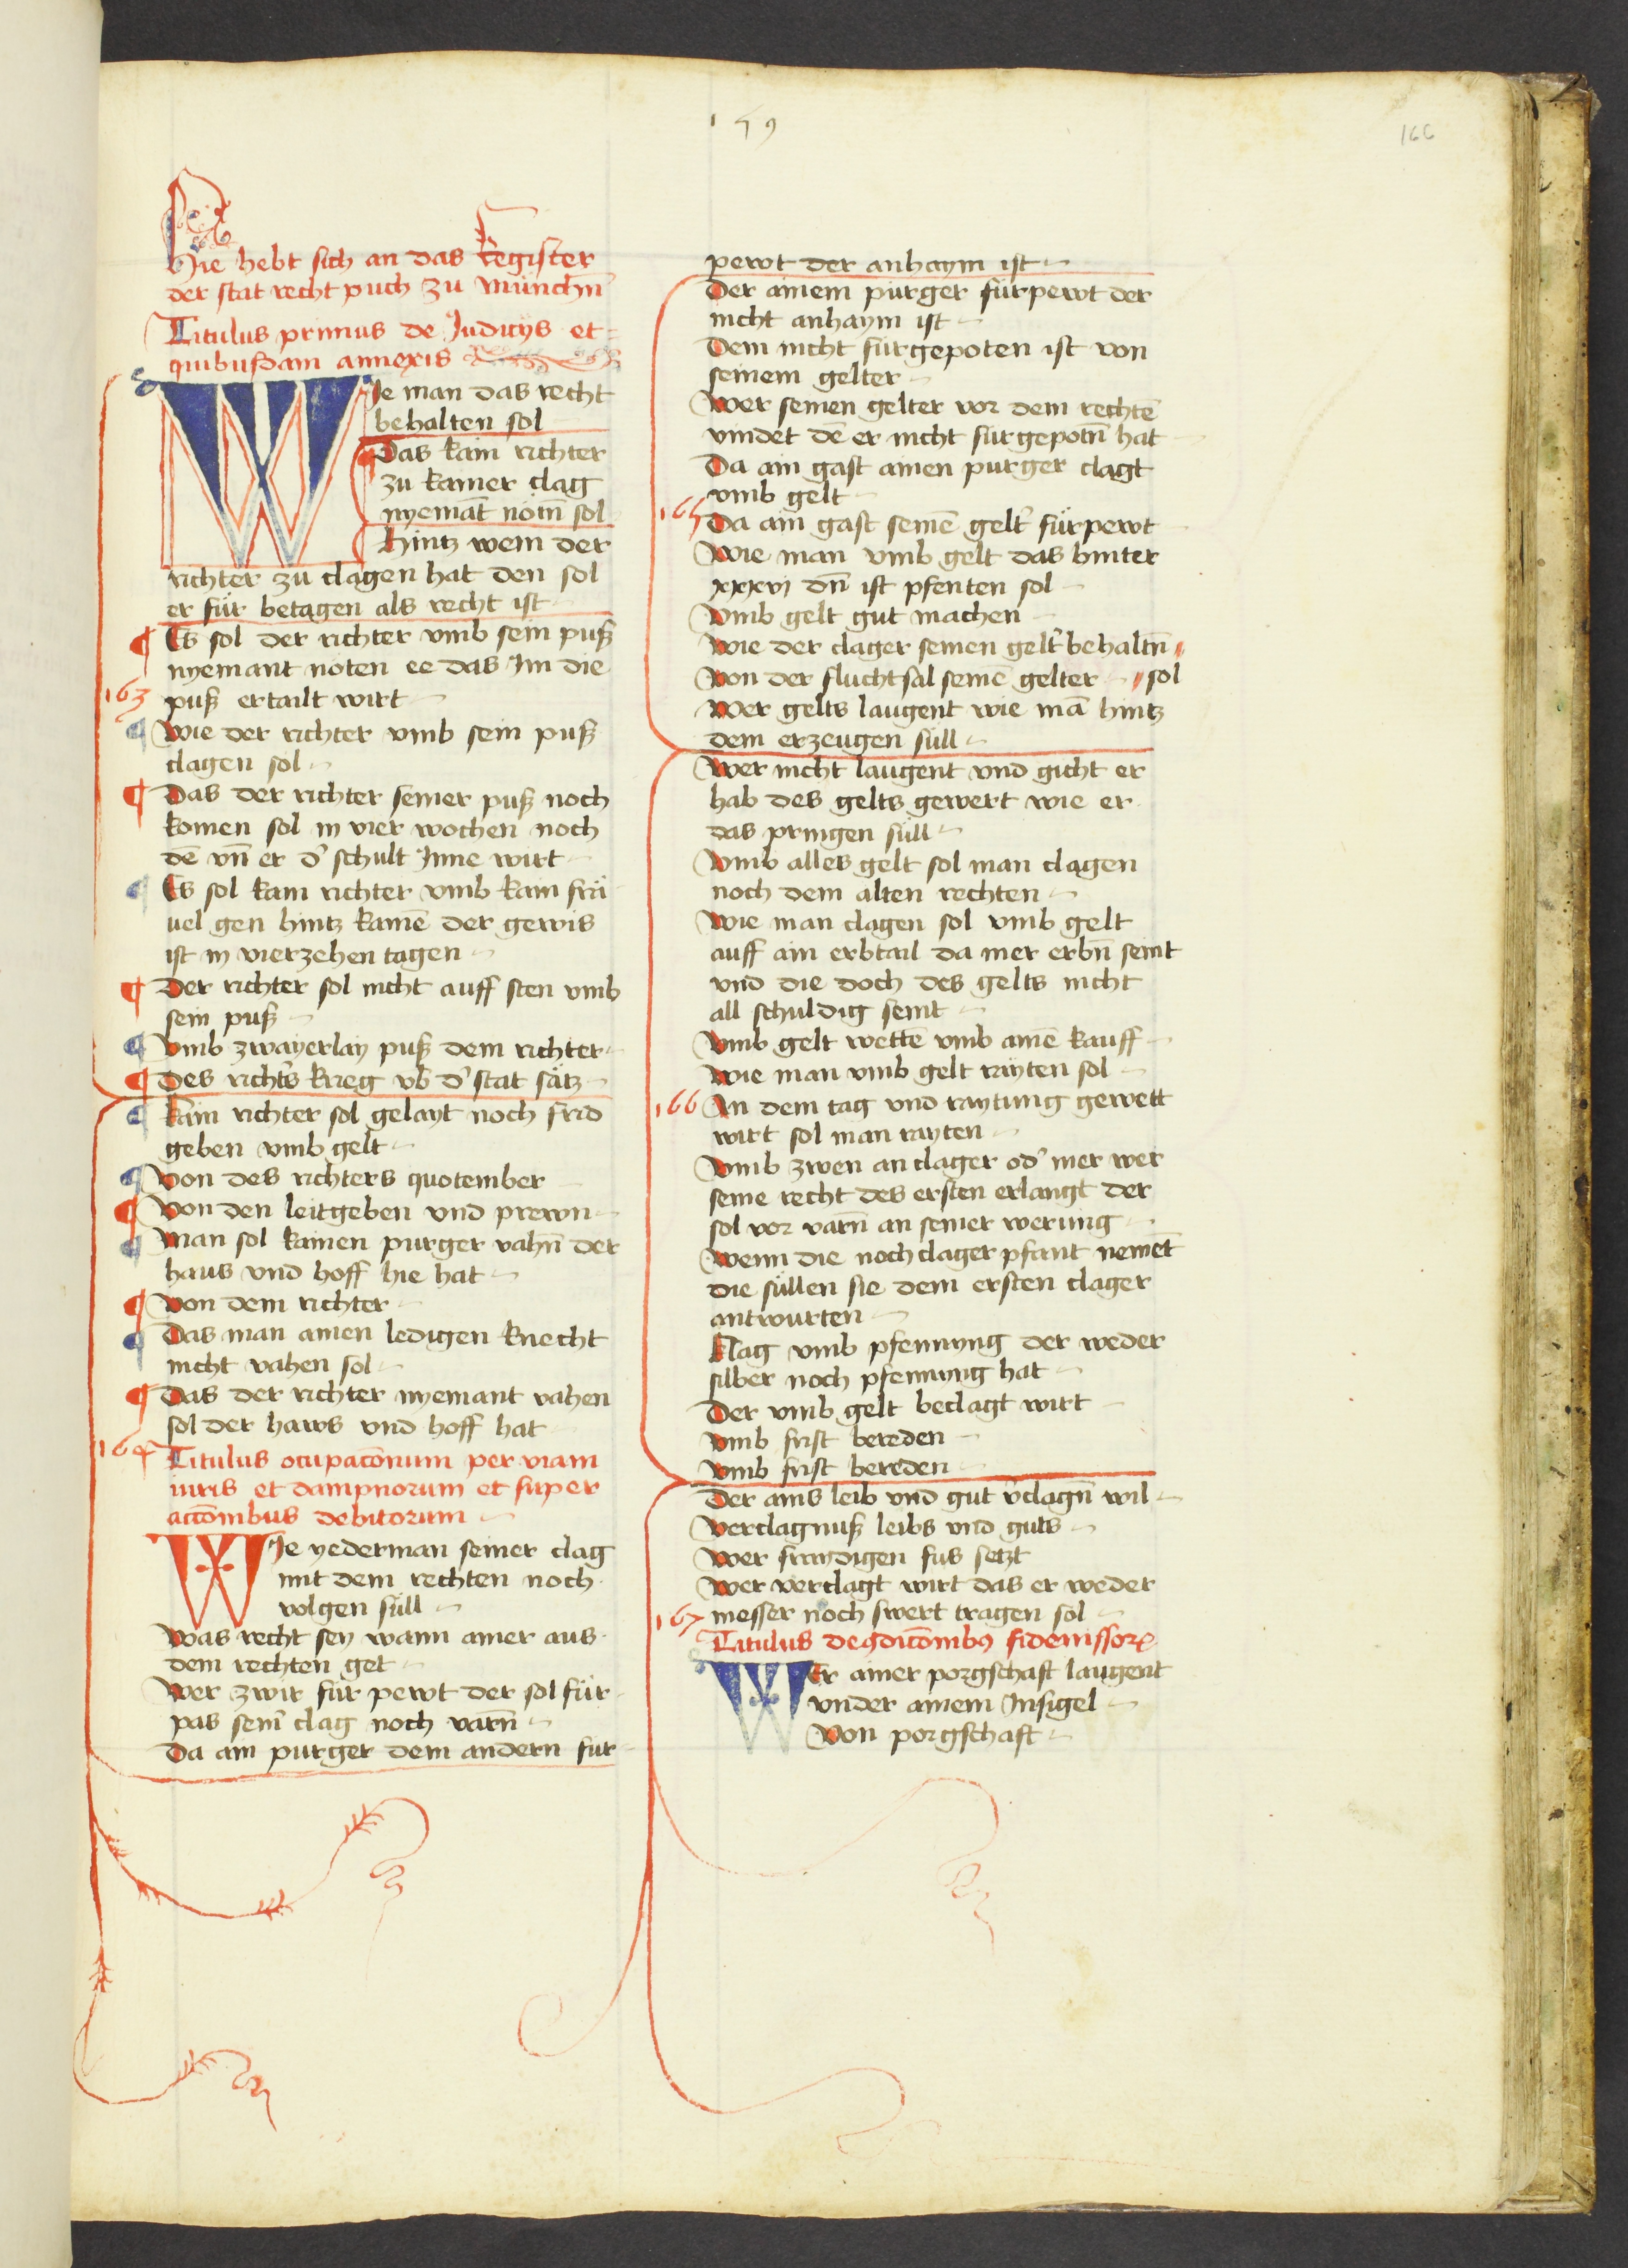 159
166
Hie hebt sich an das Register
der stat recht puch zu München̄
Titulus primus de Judicijs et
quibusdam annexis
WJe man das recht
behalten sol
Das kain richter
zu kainer clag
nyemāt nöttn̄ sol
Hintz wem der
richter zu clagen hat den sol
er für betagen als recht ist
¶ Es sol der richter vmb sein puß
nyemant nöten ee das Jm die
163 puß ertailt wirt
¶ Wie der richter vmb sein puß
clagen sol
¶ Das der richter seiner puß noch
komen sol in vier wochen noch
dē vn̄ er d' schult Jnne wirt
¶ Es sol kain richter vmb kain frä
uel gen hintz kainē der gewis
ist in vierzehen tagen
¶ Der richter sol nicht auff sten vmb
sein puß
¶ Vmb zwayerlay puß dem richter
¶ Des richt's krieg vb' d' stat sätz
¶ Kain richter sol gelayt noch frid
geben vmb gelt
¶ Von des richters quotember
¶ Von den leitgeben vnd prewn
¶ Man sol kainen purger vahn̄ der
haus vnd hoff hie hat
¶ Von dem richter
¶ Das man ainen ledigen knecht
nicht vahen sol
¶ Das der richter nyemant vahen
sol der haws vnd hoff hat
164 Titulus ocupacōnum per viam
iuris et dampnorum et super
accōnibus debitorum
WJe yederman seiner clag
mit dem rechten noch
volgen süll
Was recht sey wann ainer aus
dem rechten get
Wer zwir für pewt der sol für
pas sein' clag noch varn̄
Da ain purger dem andern für
pewt der anhaym ist
Der ainem purger fürpewt der
nicht anhaym ist
Dem nicht fürgepoten ist von
seinem gelter
Wer seinen gelter vor dem rechtē
vindet dē er nicht fürgepotn̄ hat
Da ain gast ainen purger clagt
vmb gelt
165 Da ain gast seinē gelt' fürpewt
Wie man vmb gelt das hinter
xxxvj dn̄ ist pfenten sol
Vmb gelt gut machen
Wie der clager seinen gelt' behaltn̄ //
Von der fluchtsal seinē gelter // sol
Wer gelts laugent wie mā hintz
dem erzeugen süll
Wer nicht laugent vnd gicht er
hab des gelts gewert wie er
das pringen süll
Vmb alles gelt sol man clagen
noch dem alten rechten
Wie man clagen sol vmb gelt
auff ain erbtail da mer erbn̄ seint
vnd die doch des gelts nicht
all schuldig seint
Vmb gelt wettē vmb ainē kauff
Wie man vmb gelt rayten sol
166 An dem tag vnd raytung gewett
wirt sol man rayten
Vmb zwen an clager od' mer wer
seine recht des ersten erlangt der
sol vor varn̄ an seiner werung
Wenn die noch clager pfant nemēt
die süllen sie dem ersten clager
antwurten
Klag vmb pfenning der weder
silber noch pfenning hat
Der vmb gelt beclagt wirt
Vmb frist bereden
Vmb frist bereden
Der ains leib vnd gut v'clagn̄ wil
Verclagnuß leibs vnd guts
Wer fraydigen fus setzt
Wer verclagt wirt das er weder
messer noch swert tragen sol
167 Titulus
WEr ainer porgschaft laugent
vnder ainem Jnsigel
Von porgschaft